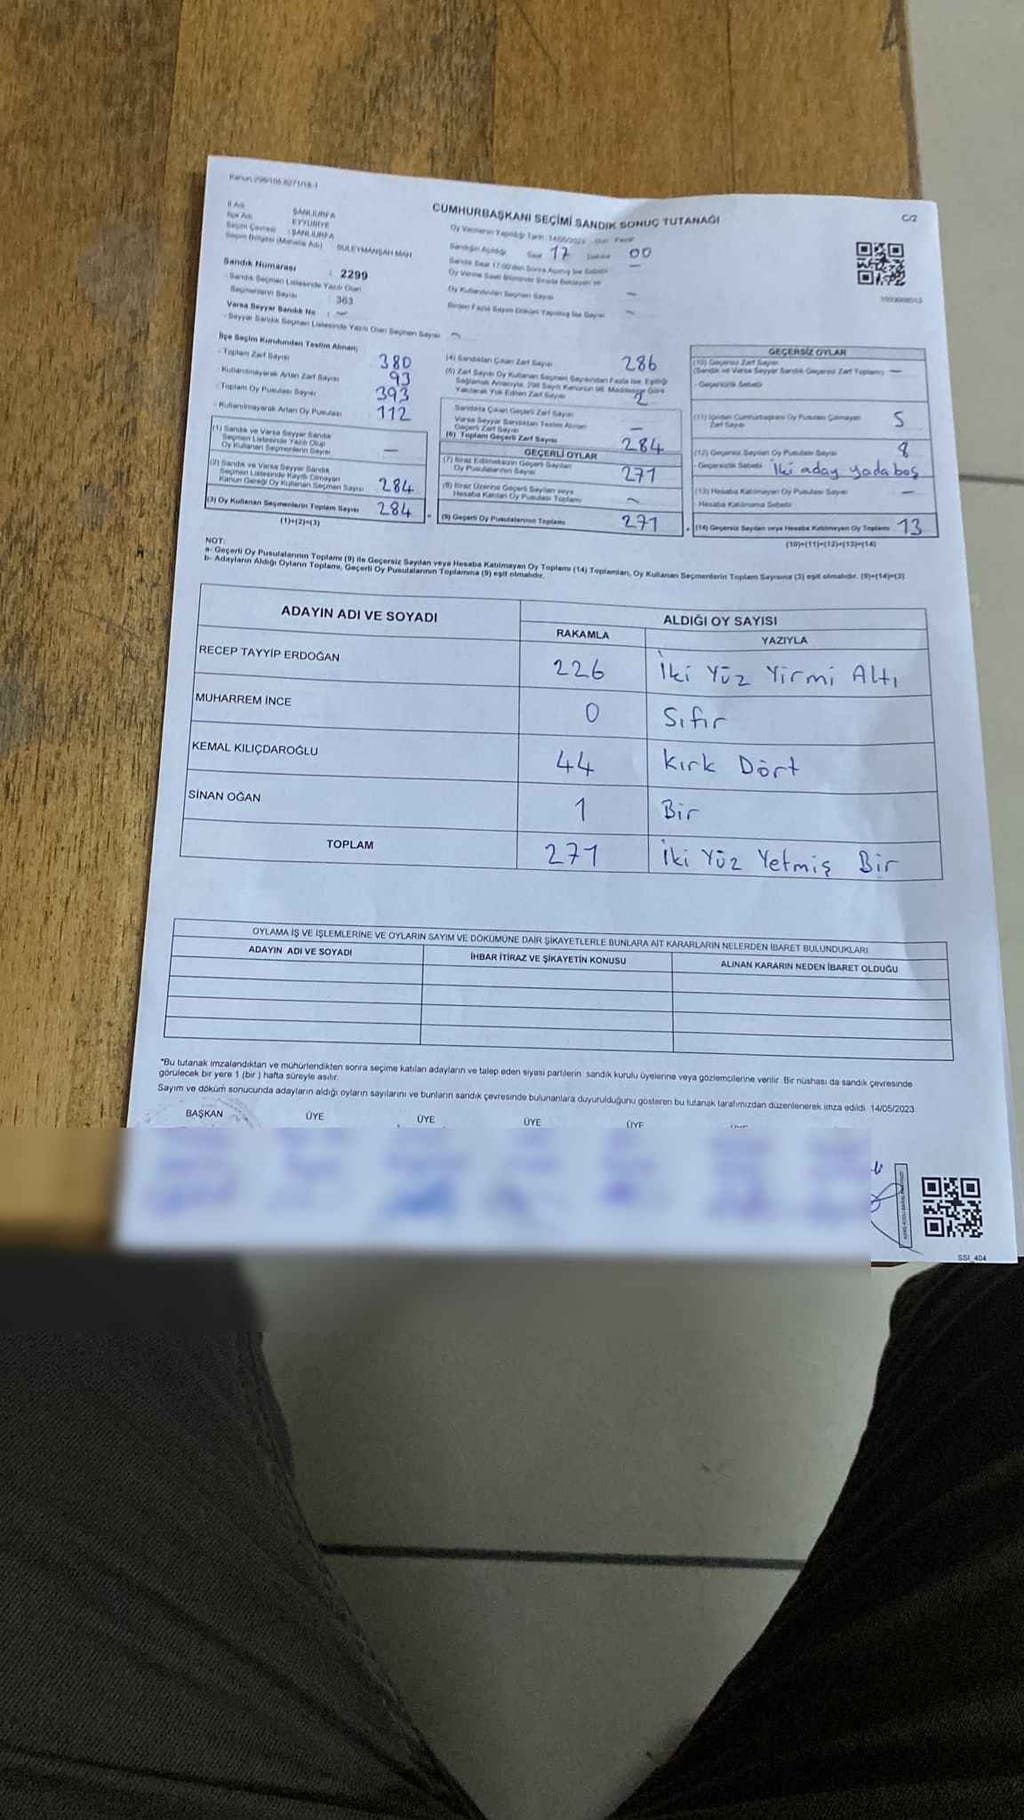 Kanun 298/105 6271/18-1
CUMHURBAŞKANI SEÇİMİ SANDIK SONUÇ TUTANAĞI
C/2
İl Adı ŞANLIURFA
İlçe Adı EYYÜBİYE
Seçim Çevresi : ŞANLIURFA
Seçim Bölgesi (Mahalle Adı) SÜLEYMANŞAH MAH
Oy Vermenin Yapıldığı Tarih : 14/05/2023
Sandığın Açıldığı Saat 17 Dakika 00
Sandık Numarası : 2299
Sandık Seçmen Listesinde Yazılı Olan
Seçmenlerin Sayısı 363
Varsa Seyyar Sandık No : -
- Seyyar Sandık Seçmen Listesinde Yazılı Olan Seçmen Sayısı -
Oy Kullandırılan Seçmen Sayısı -
Birden Fazla Sayım Döküm Yapılmış İse Sayısı -
İlçe Seçim Kurulundan Teslim Alınan;
- Toplam Zarf Sayısı 380
- Kullanılmayarak Artan Zarf Sayısı 93
- Toplam Oy Pusulası Sayısı 393
- Kullanılmayarak Artan Oy Pusulası 112
(1) Sandık ve Varsa Seyyar Sandık
Seçmen Listesinde Yazılı Olup
Oy Kullanan Seçmenlerin Sayısı -
(2) Sandık ve Varsa Seyyar Sandık
Seçmen Listesinde Kayıtlı Olmayan
Kanun Gereği Oy Kullanan Seçmen Sayısı 284
(3) Oy Kullanan Seçmenlerin Toplam Sayısı 284
(1)+(2)=(3)
(4) Sandıktan Çıkan Zarf Sayısı 286
(5) Zarf Sayısı Oy Kullanan Seçmen Sayısından Fazla İse, Eşitliği
Sağlamak Amacıyla, 298 Sayılı Kanunun 98. Maddesine Göre
Yakılarak Yok Edilen Zarf Sayısı 2
Sandıkta Çıkan Geçerli Zarf Sayısı
Varsa Seyyar Sandıktan Teslim Alınan
Geçerli Zarf Sayısı -
(6) Toplam Geçerli Zarf Sayısı 284
GEÇERLİ OYLAR
(7) İtiraz Edilmeksizin Geçerli Sayılan
Oy Pusulalarının Sayısı 271
(8) İtiraz Üzerine Geçerli Sayılan veya
Hesaba Katılan Oy Pusulası Toplamı -
(9) Geçerli Oy Pusulalarının Toplamı 271
GEÇERSİZ OYLAR
(10) Geçersiz Zarf Sayısı
(Sandık ve Varsa Seyyar Sandık Geçersiz Zarf Toplamı) -
- Geçersizlik Sebebi
(11) İçinden Cumhurbaşkanı Oy Pusulası Çıkmayan
Zarf Sayısı 5
(12) Geçersiz Sayılan Oy Pusulası Sayısı 8
- Geçersizlik Sebebi İki aday yada boş
(13) Hesaba Katılmayan Oy Pusulası Sayısı -
Hesaba Katılmama Sebebi
(14) Geçersiz Sayılan veya Hesaba Katılmayan Oy Toplamı 13
(10)+(11)+(12)+(13)=(14)
NOT:
a- Geçerli Oy Pusulalarının Toplamı (9) ile Geçersiz Sayılan veya Hesaba Katılmayan Oy Toplamı (14) Toplamları, Oy Kullanan Seçmenlerin Toplam Sayısına (3) eşit olmalıdır. (9)+(14)=(3)
b- Adayların Aldığı Oyların Toplamı, Geçerli Oy Pusulalarının Toplamına (9) eşit olmalıdır.
ADAYIN ADI VE SOYADI
ALDIĞI OY SAYISI
RAKAMLA YAZIYLA
RECEP TAYYİP ERDOĞAN 226 İki Yüz Yirmi Altı
MUHARREM İNCE 0 Sıfır
KEMAL KILIÇDAROĞLU 44 Kırk Dört
SİNAN OĞAN 1 Bir
TOPLAM 271 İki Yüz Yetmiş Bir
OYLAMA İŞ VE İŞLEMLERİNE VE OYLARIN SAYIM VE DÖKÜMÜNE DAİR ŞİKAYETLERLE BUNLARA AİT KARARLARIN NELERDEN İBARET BULUNDUKLARI
ADAYIN ADI VE SOYADI İHBAR İTİRAZ VE ŞİKAYETİN KONUSU ALINAN KARARIN NEDEN İBARET OLDUĞU
*Bu tutanak imzalandıktan ve mühürlendikten sonra seçime katılan adayların ve talep eden siyasi partilerin sandık kurulu üyelerine veya gözlemcilerine verilir. Bir nüshası da sandık çevresinde
görülecek bir yere 1 (bir) hafta süreyle asılır.
Sayım ve döküm sonucunda adayların aldığı oyların sayılarını ve bunların sandık çevresinde bulunanlara duyurulduğunu gösteren bu tutanak tarafımızdan düzenlenerek imza edildi. 14/05/2023
BAŞKAN ÜYE ÜYE ÜYE ÜYE
SSI_404